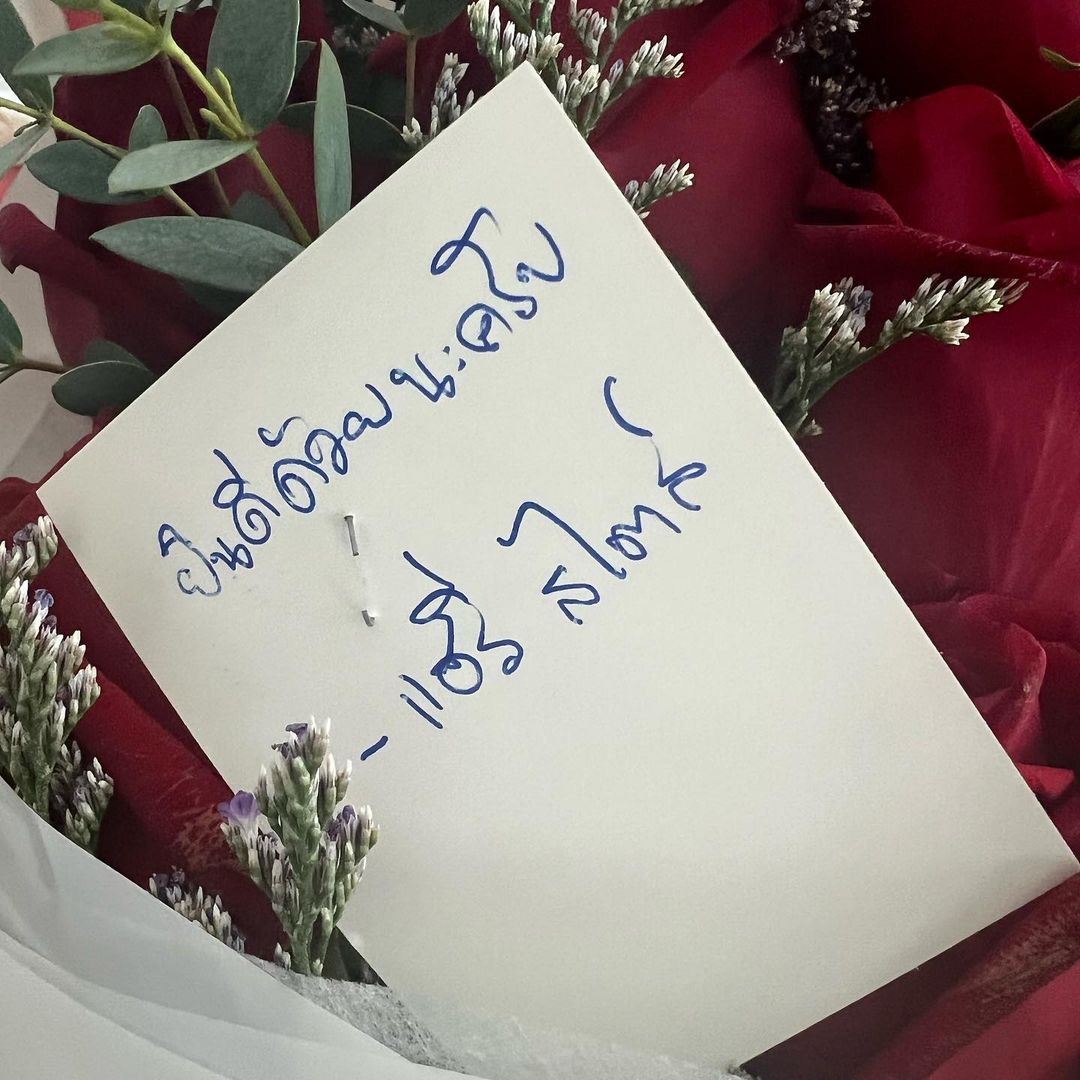 ยินดีด้วยนะครับ
- แฮรี่ สไตล์